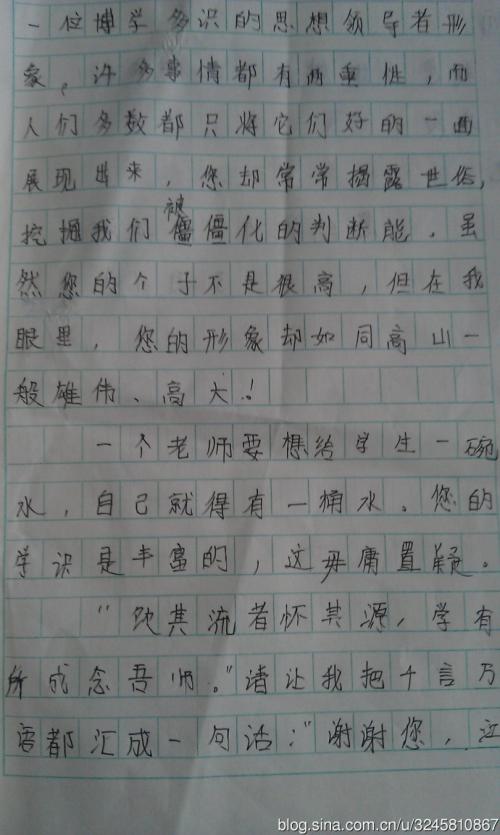 一位博学多识的思想领导者形
象。许多事情都有两重性，而
人们多数都只将它们好的一面
展现出来，您却常常揭露世俗，
挖掘我们被僵僵化的判断能。虽
然您的个子不是很高，但在我
眼里，您的形象却如同高山一
般雄伟、高大！
一个老师要想给学生一碗
水，自己就得有一桶水。您的
学识是丰富的，这毋庸置疑。
“饮其流者怀其源，学有
所成念吾师。”请让我把千言万
语都汇成一句话：“谢谢您，江
blog.sina.com.cn/u/3245810867